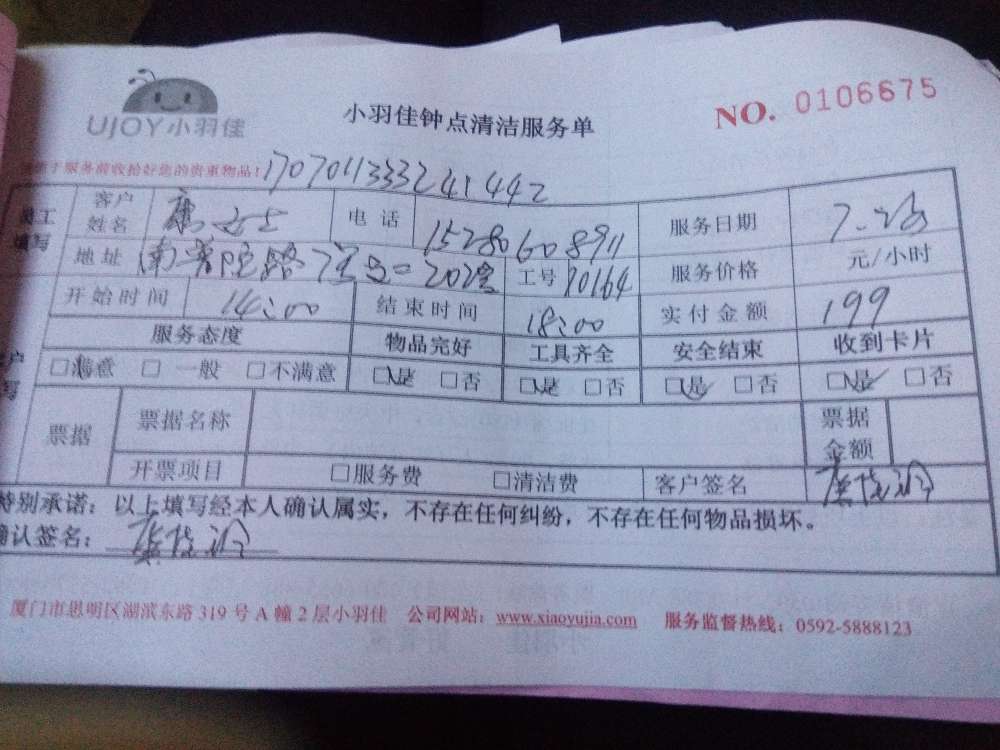 UJOY小羽佳
小羽佳钟点清洁服务单
NO. 0106675
于服务前收拾好您的贵重物品！
17070113333241442
员工填写
客户姓名 女士 电话 15280608911 服务日期 7.
地址 南普陀路 202室 工号 70164 服务价格 元/小时
开始时间 14:00 结束时间 18:00 实付金额 199
服务态度 物品完好 工具齐全 安全结束 收到卡片
□满意 □一般 □不满意 □是 □否 □是 □否 □是 □否 □是 □否
票据 票据名称 票据金额
开票项目 □服务费 □清洁费 客户签名
特别承诺：以上填写经本人确认属实，不存在任何纠纷，不存在任何物品损坏。
确认签名：
厦门市思明区湖滨东路319号A幢2层小羽佳 公司网站：www.xiaoyujia.com 服务监督热线：0592-5888123